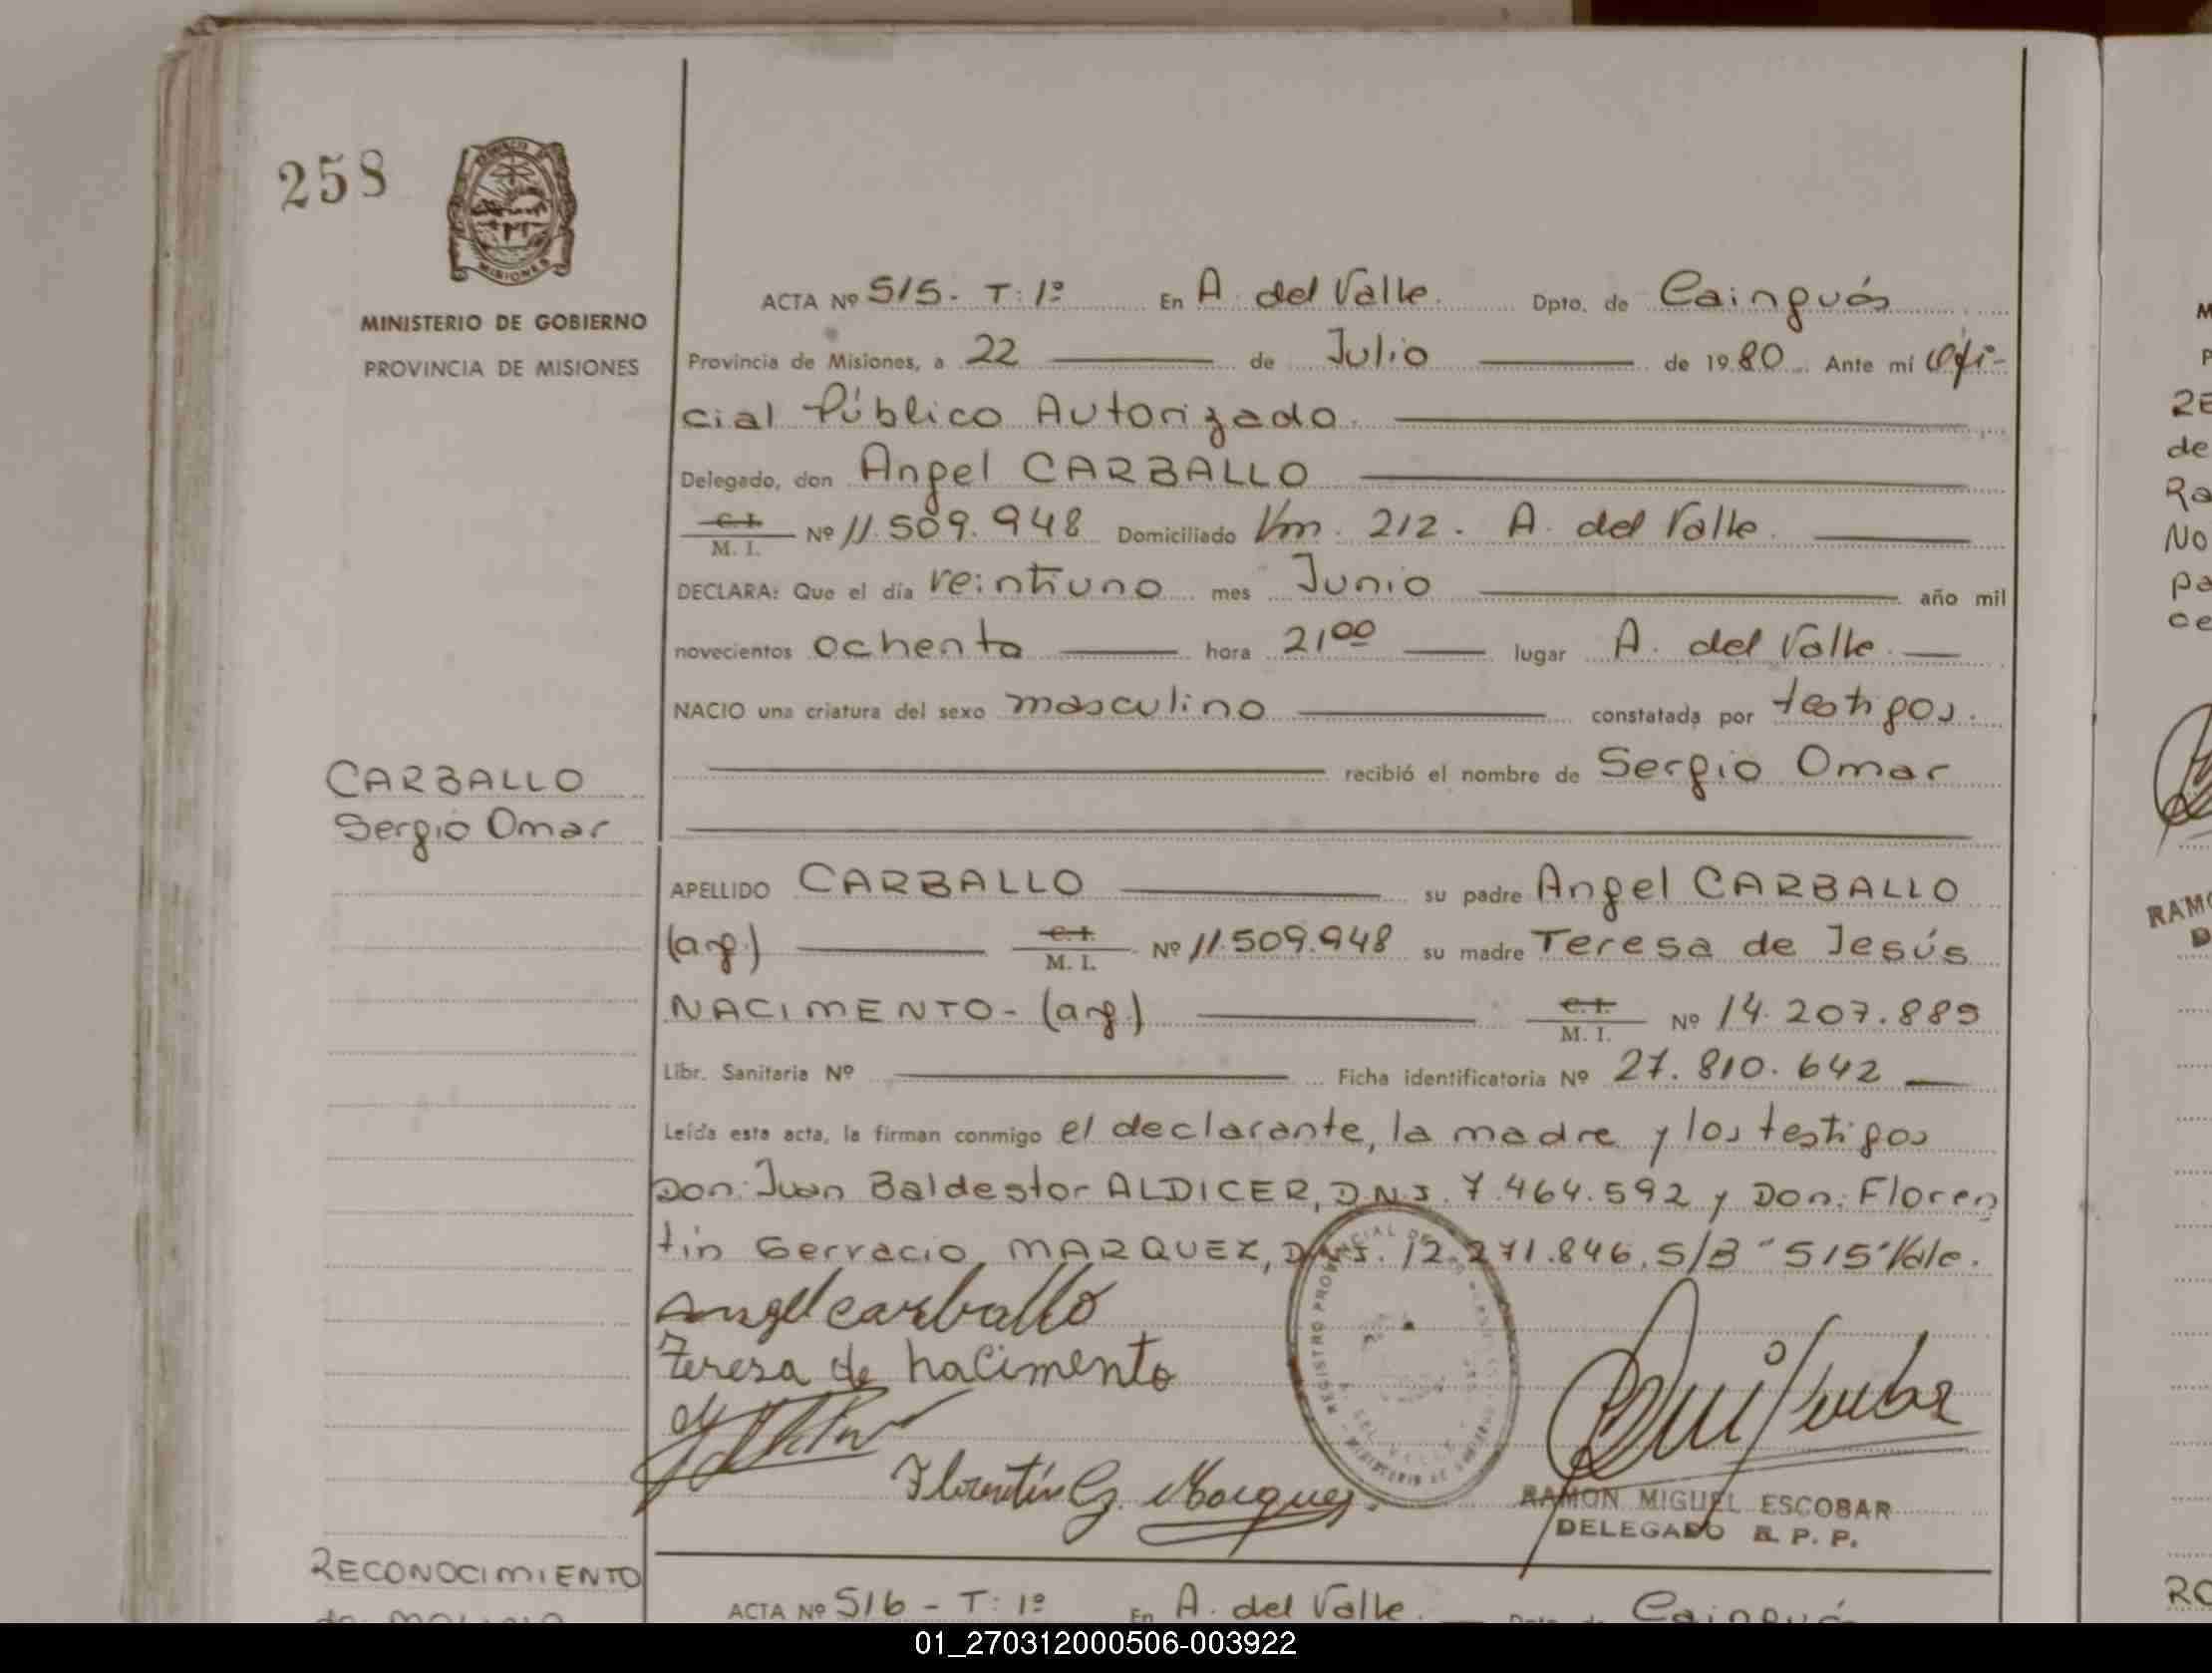 258
MISIONES
MINISTERIO DE GOBIERNO
PROVINCIA DE MISIONES
ACTA Nº 515- T: 1º En A. del Valle. Dpto. de Cainguás
Provincia de Misiones, a 22 de Julio de 1980 Ante mí Ofi-
cial Público Autorizado.
Delegado, don Angel CARBALLO
C. I.
M. I. Nº 11.509.948 Domiciliado Km. 212. A. del Valle.
DECLARA: Que el día veintiuno mes Junio año mil
novecientos ochenta hora 21⁰⁰ lugar A. del Valle.
NACIO una criatura del sexo masculino constatada por testigos.
recibió el nombre de Sergio Omar
CARBALLO
Sergio Omar
APELLIDO CARBALLO su padre Angel CARBALLO
(arg.) C. I. M. I. Nº 11.509.948 su madre Teresa de Jesús
NACIMENTO- (arg.) C. I. M. I. Nº 14.207.889
Libr. Sanitaria Nº Ficha identificatoria Nº 27.810.642
Leída esta acta, la firman conmigo el declarante, la madre y los testigos
Don: Juan Baldestor ALDICER, D.N.I. 7.464.592 y Don: Floren
tin Gervacio MARQUEZ, D.N.I. 12.271.846. S/B "515" Vale.
Angel carballo
Teresa de nacimento
Florentín G. Marquez.
REGISTRO PROVINCIAL DE
RAMON MIGUEL ESCOBAR
DELEGADO R. P. P.
RECONOCIMIENTO
ACTA Nº 516 - T: 1º En A. del Valle. Dpto. de Cainguás
01_270312000506-003922